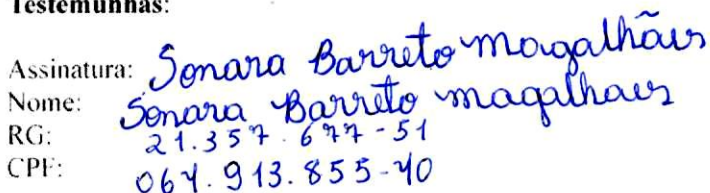 Testemunhas:
Assinatura: Sonara Barreto magalhães
Nome: Sonara Barreto magalhaes
RG: 21.357.677-51
CPF: 064.913.855-40